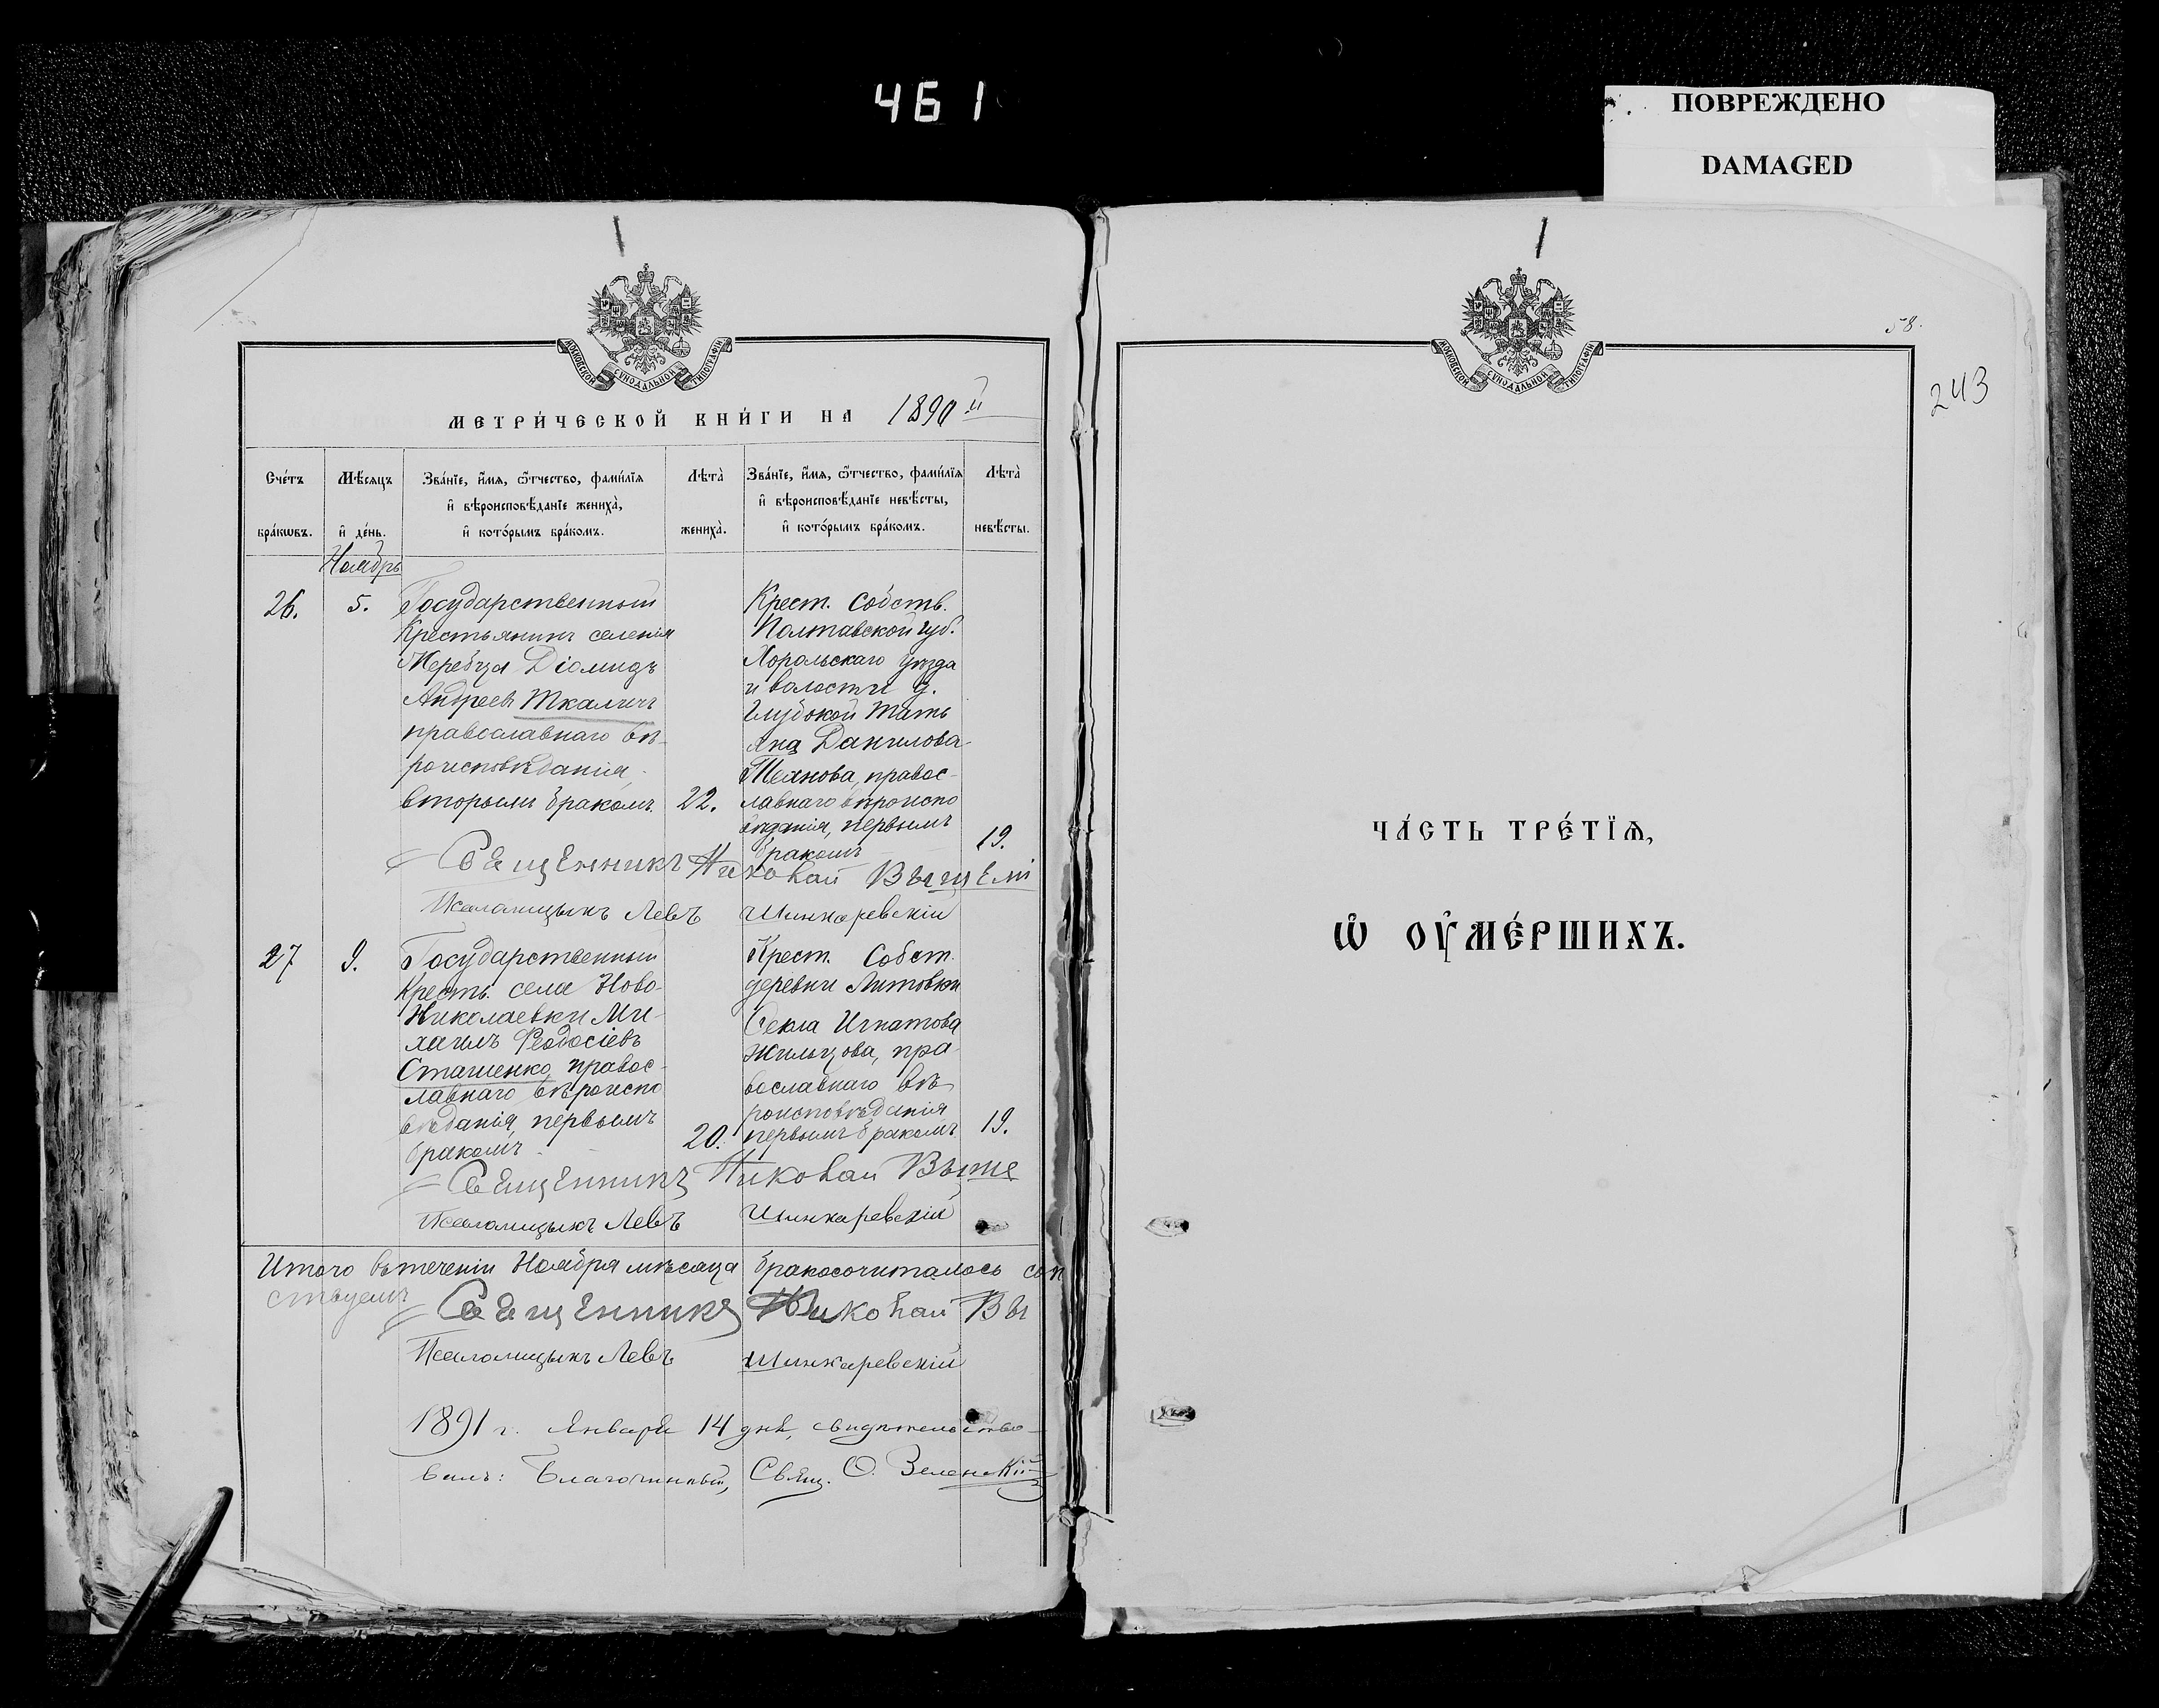 461
ПОВРЕЖДЕНО
DAMAGED
МОСКОВСКОЙ СѴНОДАЛЬНОЙ ТИПОГРАФІИ
МЕТРИ́ЧЕСКОЙ КНИ́ГИ НА 1890й
Сче́тъ бра́кѡвъ.
Мѣ́сяцъ и҆ де́нь.
Зва́нїе, и҆́мѧ, ѻ҆́тчество, фами́лїѧ
и҆ вѣроисповѣ́данїе жениха̀,
и҆ кото́рымъ бра́комъ.
Лѣта̀ жениха̀.
Зва́нїе, и҆́мѧ, ѻ҆́тчество, фами́лїѧ
и҆ вѣроисповѣ́данїе невѣ́сты,
и҆ кото́рымъ бра́комъ.
Лѣта̀ невѣ́сты.
Ноябрь
26.
5.
Государственный
Крестьянинъ селенія
Жеребца Діомидъ
Андреевъ Ткаличъ
православнаго вѣ-
роисповѣданія
вторымъ бракомъ.
22.
Крест. Собств.
Полтавской губ.
Хорольскаго уѣзда
и волости д.
Глубокой Тать
яна Данилова
православ-
лавнаго вѣроиспо
вѣданія, первымъ
бракомъ
19.
Священникъ Николай
Псаломщикъ Левъ Шинкаревскій
27
9.
Государственный
Кресть. села Ново-
Николаевки Ми-
хаилъ Феодосіевъ
Сташенко, правос-
лавнаго вѣроиспо
вѣданія, первымъ
бракомъ
20.
Крест. Собст.
деревни Литовки
Фекла Игнатова
Жильцова, пра-
вославнаго вѣ-
роисповѣданія
первымъ бракомъ
19.
Священникъ Николай
Псаломщикъ Левъ Шинкаревскій
Итого въ теченіи Ноября мѣсяца бракосочиталось
Священникъ Николай Вы
Псаломщикъ Левъ Шинкаревскій
1891 г. Января 14 дня, свидѣтельство-
валъ: Благочинный, Свящ. О. Зеленскій
58.
243
МОСКОВСКОЙ СѴНОДАЛЬНОЙ ТИПОГРАФІИ
ЧА́СТЬ ТРЕ́ТЇѦ,
Ѡ҆ ОУ҆МЕ́РШИХЪ.